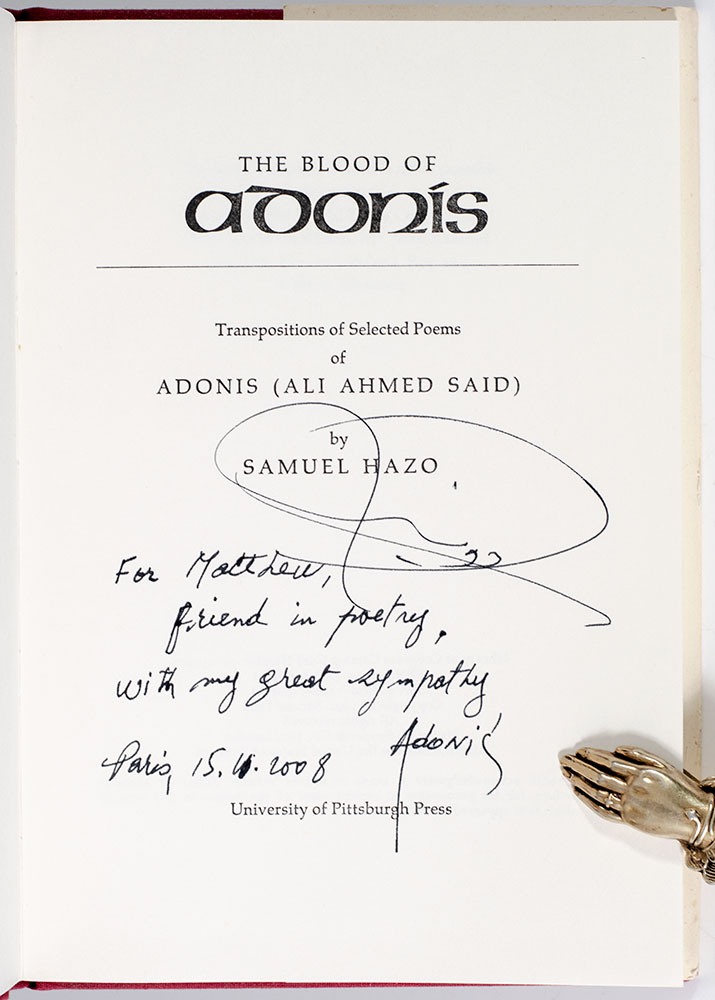 THE BLOOD OF
adonís
Transpositions of Selected Poems
of
ADONIS (ALI AHMED SAID)
by
SAMUEL HAZO
For Matthew,
friend in poetry,
with my great sympathy
Adonis
Paris, 15.11.2008
University of Pittsburgh Press